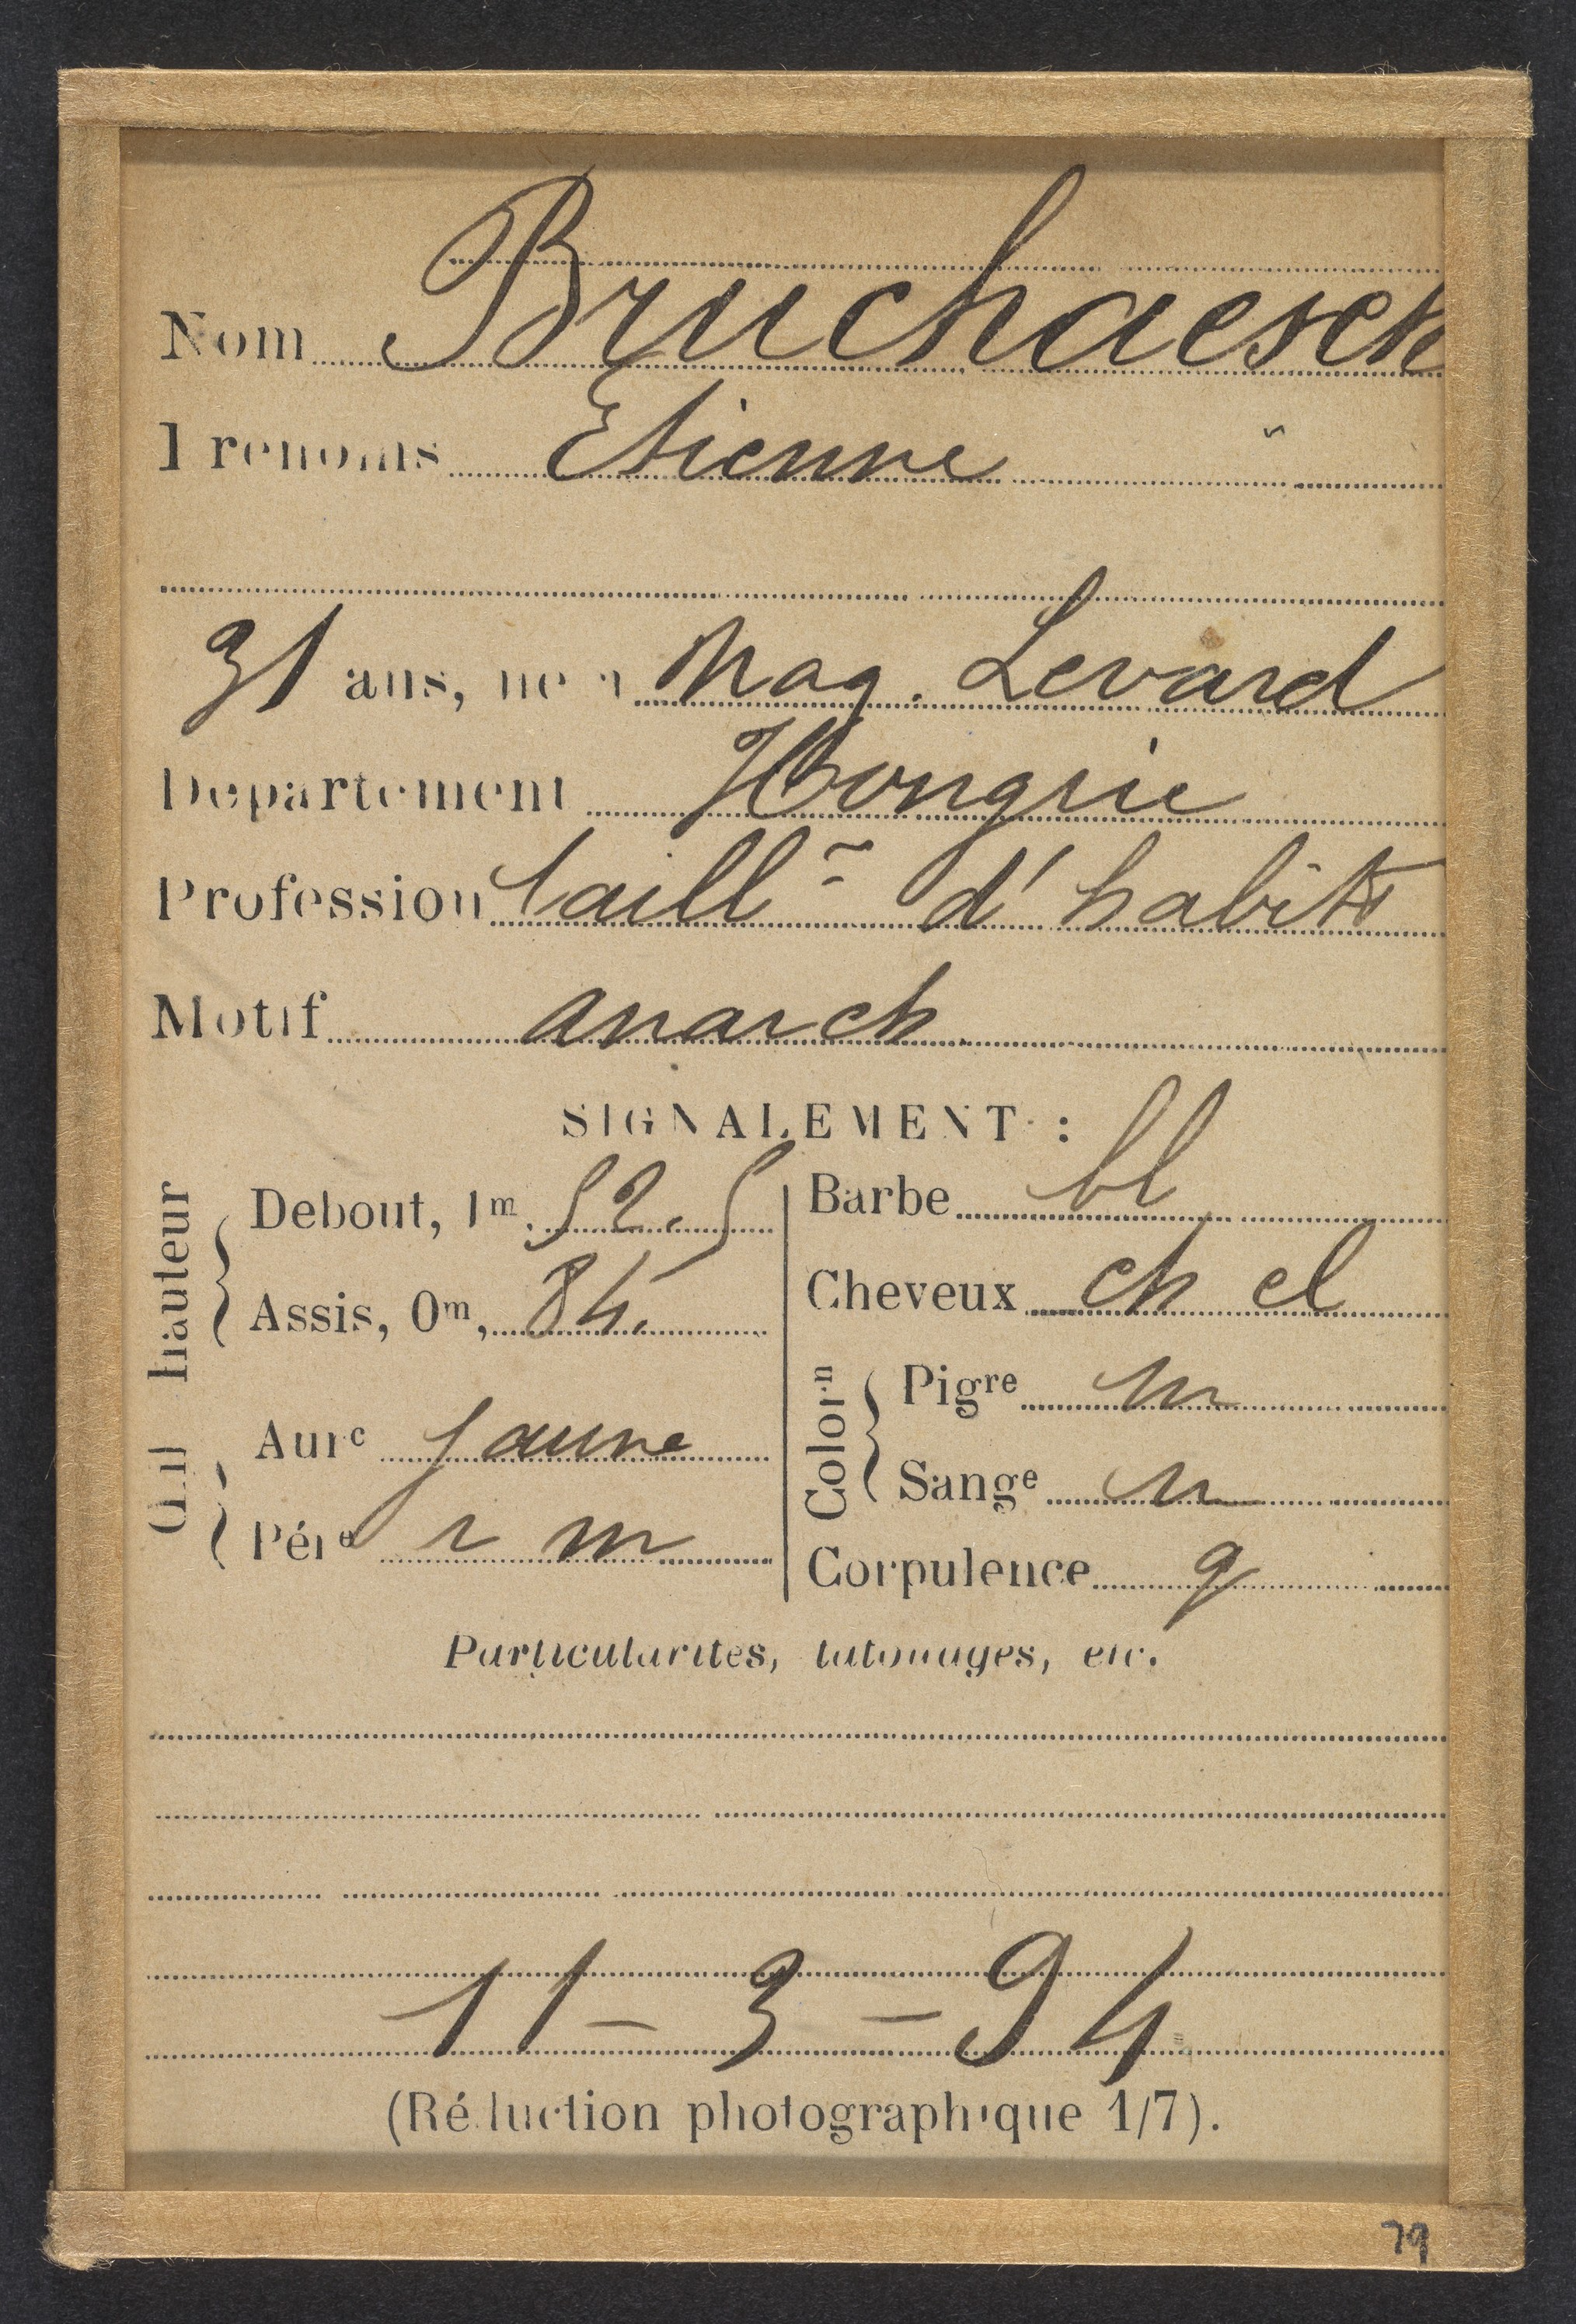 Nom Bruchaesek
Prenoms Etienne
31 ans, né à Mag. Levard
Departement Hongrie
Profession taillr d'habits
Motif anarch.
SIGNALEMENT :
Hauteur
Debout, 1m. 52.5
Assis, 0m, 84.
Œil
Aure jaune
Pére r m
Barbe bl
Cheveux ch cl
Colorn
Pigre m
Sange m
Corpulence g
Particularites, tatouages, etc.
11-3-94
(Réduction photographique 1/7).
79